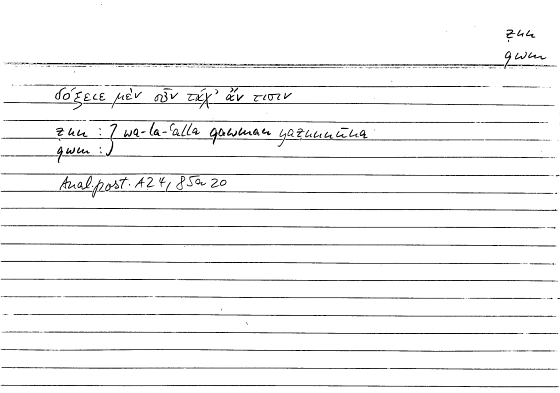 ẓnn
qwm
δόξειε μὲν οὖν τάχ' ἄν τισιν
ẓnn : } wa-la-ʿalla qawman yaẓunnūna
qwm : }
Anal. post. A 24, 85a20